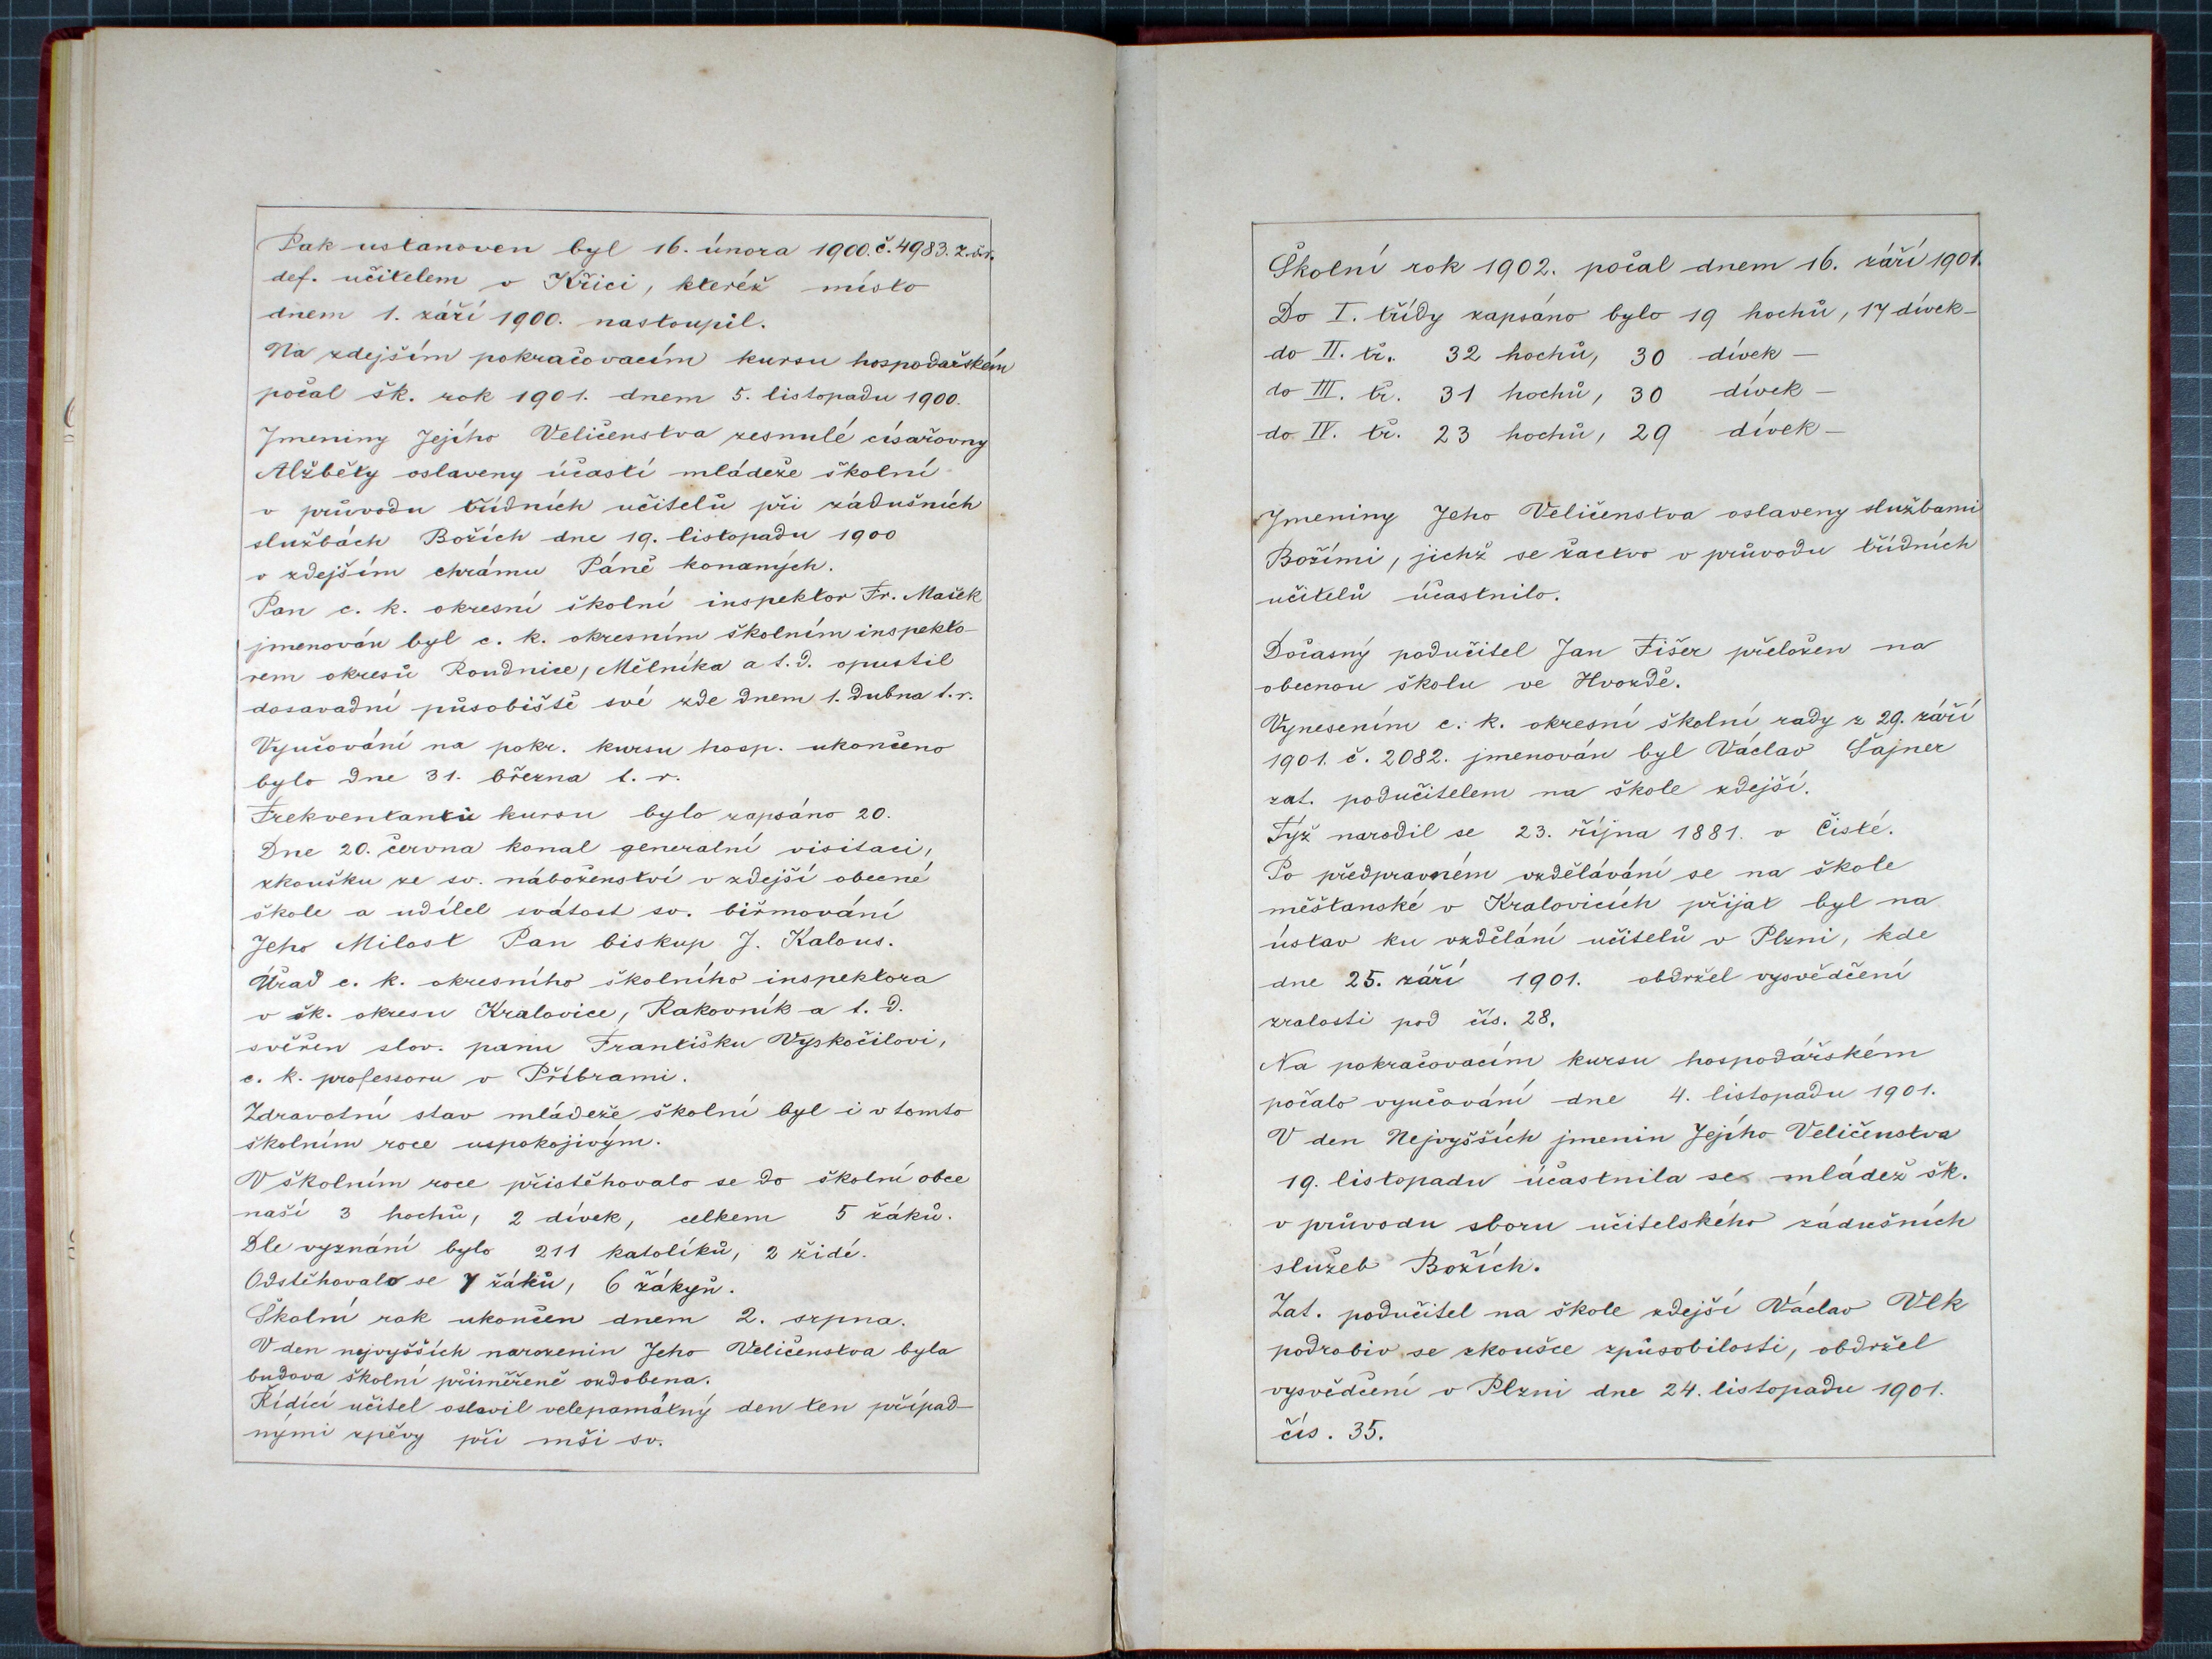 Pak ustanoven byl 16. února 1900. č. 4983. z. š. r.
def. učitelem v Křici, kteréž místo
dnem 1. září 1900. nastoupil.
Na zdejším pokračovacím kursu hospodařském
počal šk. rok 1901. dnem 5. listopadu 1900.
Jmeniny Jejího Veličenstva zesnulé císařovny
Alžběty oslaveny účastí mládeže školní
v průvodu třídních učitelů při zádušních
službách Božích dne 19. listopadu 1900
v zdejším chrámu Páně konaných.
Pan c. k. okresní školní inspektor Fr. Mašek
jmenován byl c. k. okresním školním inspekto-
rem okresů Roudnice, Mělníka a t. d. opustil
dosavadní působiště své zde dnem 1. dubna t. r.
Vyučování na pokr. kursu hosp. ukončeno
bylo dne 31. března t. r.
Frekventantů kursu bylo zapsáno 20.
Dne 20. června konal generalní visitaci,
zkoušku ze sv. náboženství v zdejší obecné
škole a udílel svátost sv. biřmování
Jeho Milost Pan biskup J. Kalous.
Úřad c. k. okresního školního inspektora
v šk. okresu Kralovice, Rakovník a t. d.
svěřen slov. panu Františku Vyskočilovi,
c. k. professoru v Příbrami.
Zdravotní stav mládeže školní byl i v tomto
školním roce uspokojivým.
V školním roce přistěhovalo se do školní obce
naší 3 hochů, 2 dívek, celkem 5 žáků.
Dle vyznání bylo 211 katolíků, 2 židé.
Odstěhovalo se 7 žáků, 6 žákyň.
Školní rok ukončen dnem 2. srpna.
V den nejvyšších narozenin Jeho Veličenstva byla
budova školní přiměřeně ozdobena.
Řídící učitel oslavil velepamátný den ten případ-
nými zpěvy při mši sv.
Školní rok 1902. počal dnem 16. září 1901.
Do I. třídy zapsáno bylo 19 hochů, 17 dívek -
do II. tř. 32 hochů, 30 dívek -
do III. tř. 31 hochů, 30 dívek -
do IV. tř. 23 hochů, 29 dívek -
Jmeniny Jeho Veličenstva oslaveny službami
Božími, jichž se žactvo v průvodu třídních
učitelů účastnilo.
Dočasný podučitel Jan Fišer přeložen na
obecnou školu ve Hvozdě.
Vynesením c. k. okresní školní rady z 29. září
1901. č. 2082. jmenován byl Václav Šajner
zat. podučitelem na škole zdejší.
Týž narodil se 23. října 1881. v Čisté.
Po předpravném vzdělávání se na škole
měšťanské v Kralovicích přijat byl na
ústav ku vzdělání učitelů v Plzni, kde
dne 25. září 1901. obdržel vysvědčení
zralosti pod čís. 28.
Na pokračovacím kursu hospodářském
počalo vyučování dne 4. listopadu 1901.
V den Nejvyšších jmenin Jejího Veličenstva
19. listopadu účastnila se mládež šk.
v průvodu sboru učitelského zádušních
služeb Božích.
Zat. podučitel na škole zdejší Václav Vlk
podrobiv se zkoušce způsobilosti, obdržel
vysvědčení v Plzni dne 24. listopadu 1901.
čís. 35.